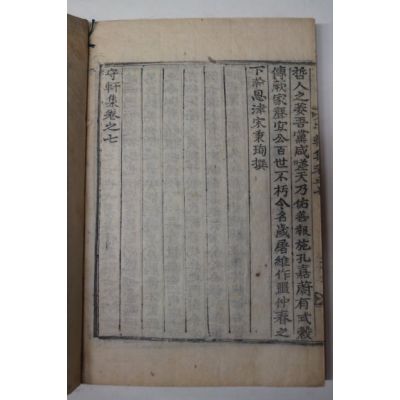 哲人之萎吾黨咸嗟天乃佑善報施孔嘉蔚有式穀
傳厥家聲安公百世不朽今名歲屠維作噩仲春之
下澣恩津宋秉珣撰
守軒集卷之七